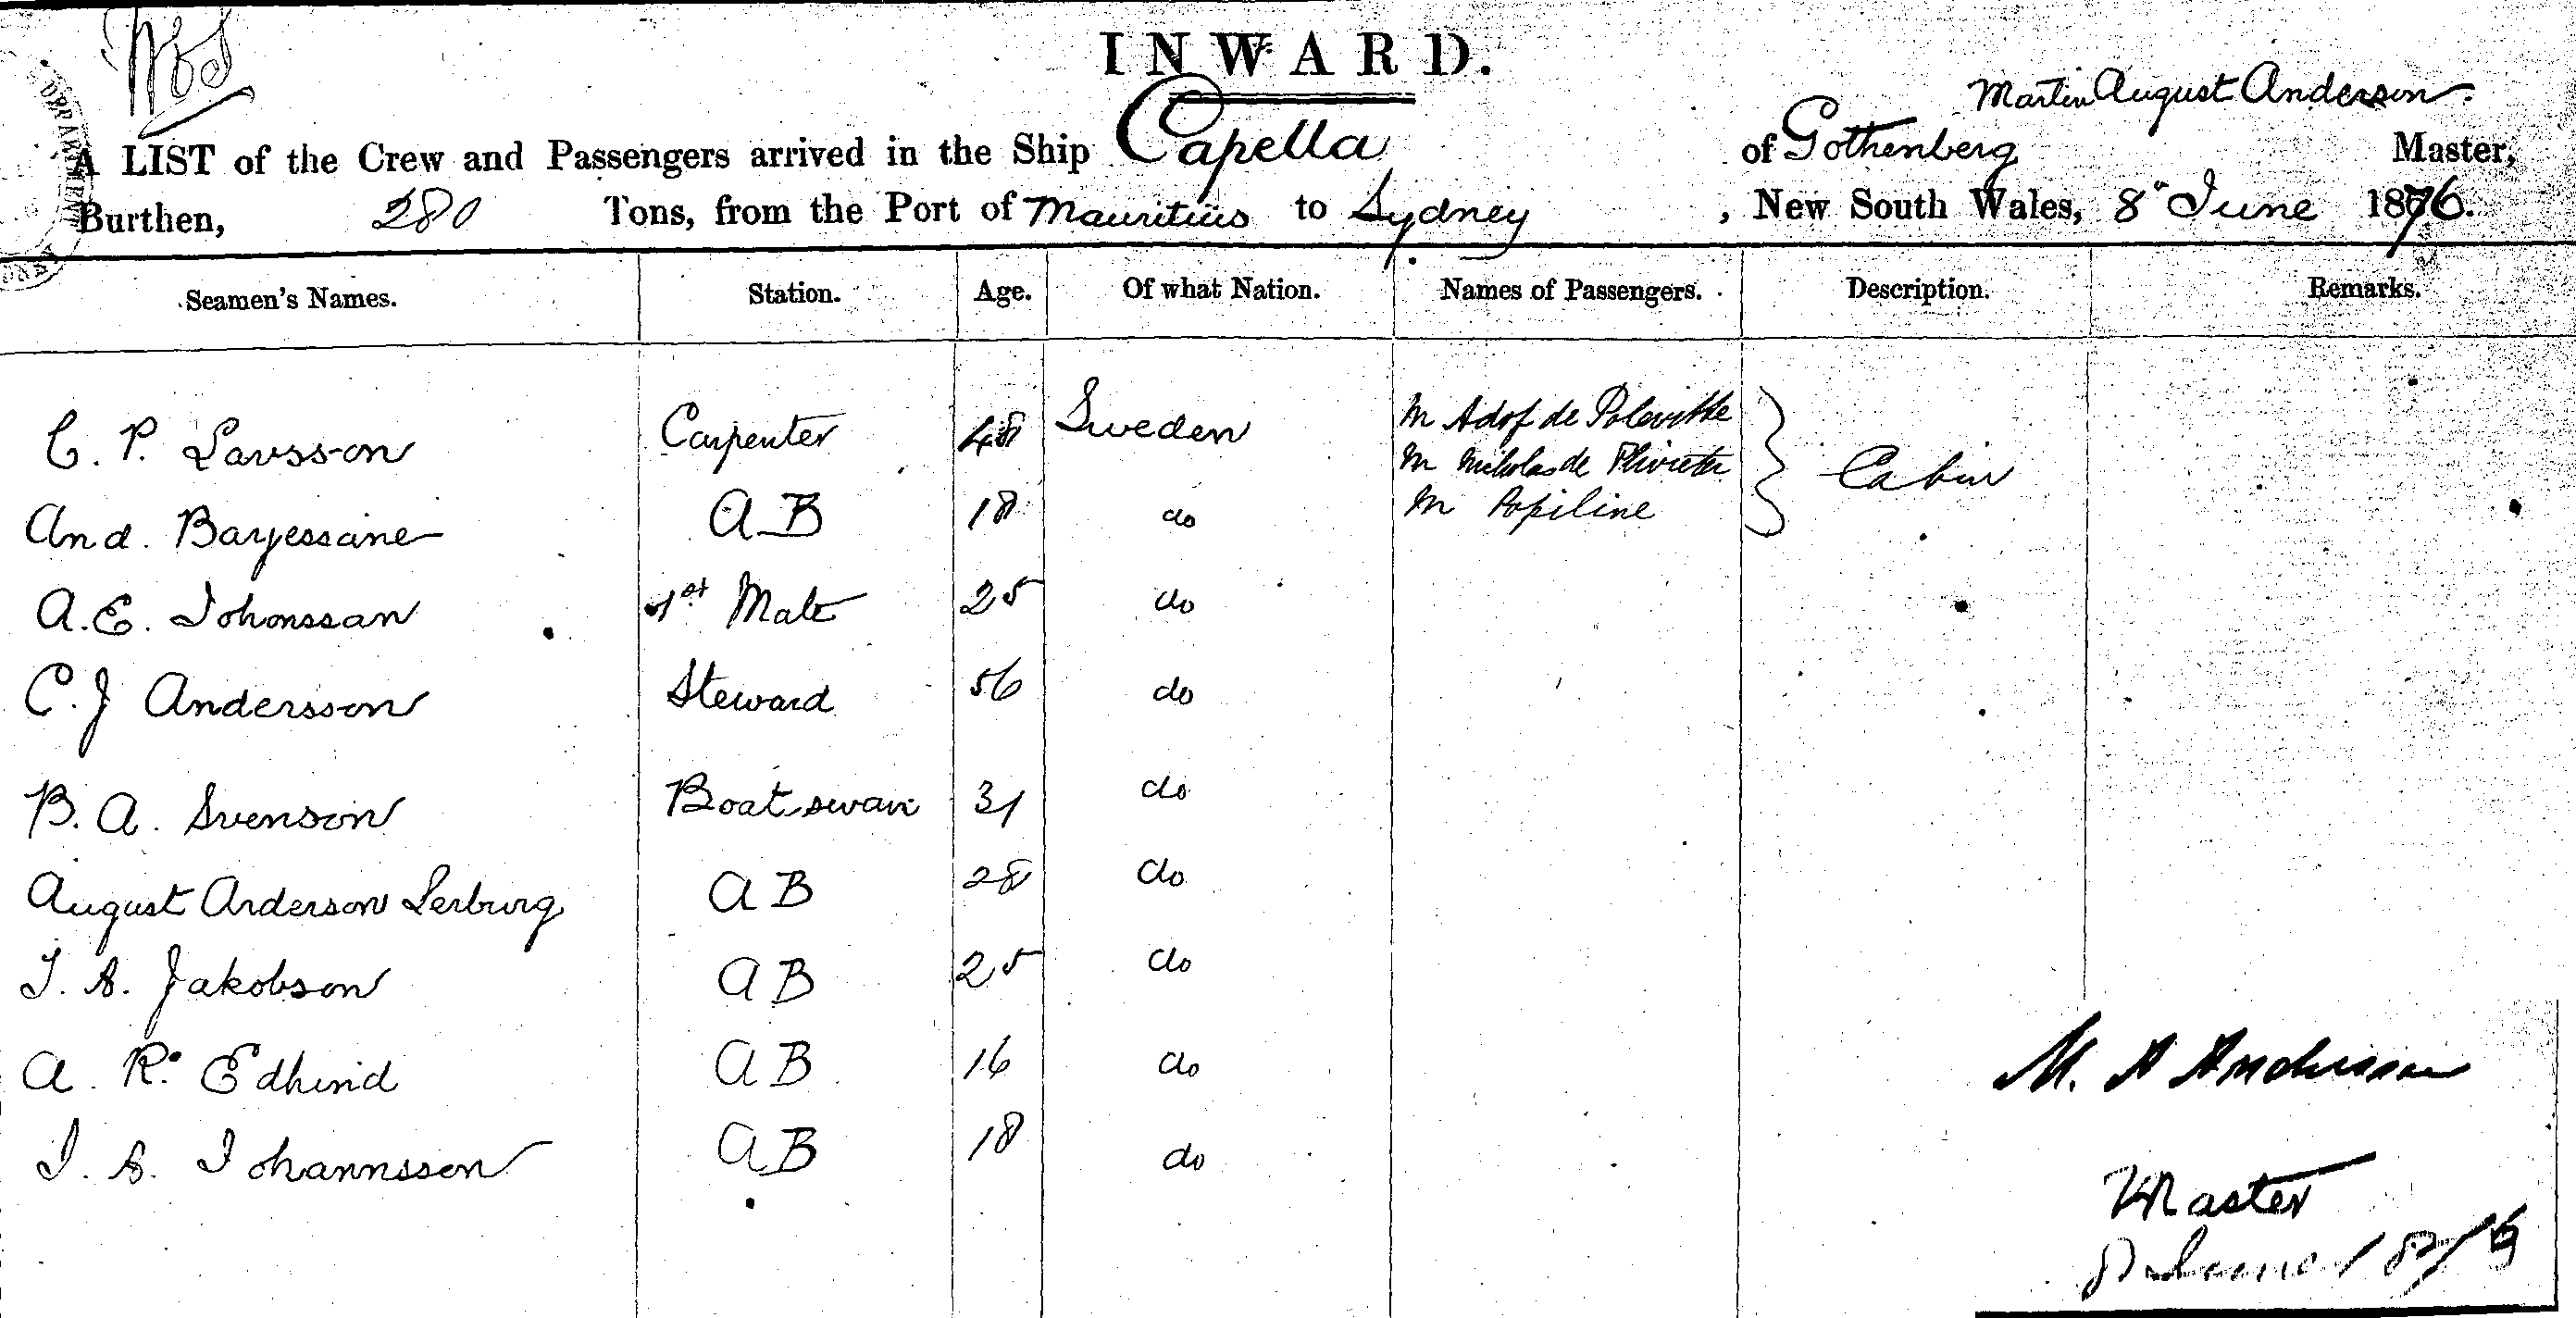 INWARD.
Martin August Anderson.
A LIST of the Crew and Passengers arrived in the Ship Capella of Gothenberg Master,
Burthen, 280 Tons, from the Port of Mauritius to Sydney, New South Wales, 8 June 1876.
Seamen's Names. Station. Age. Of what Nation. Names of Passengers. Description. Remarks.
C. P. Larsson Carpenter 48 Sweden M Adof de
M Nikolas de
M Popiline
Cabin
And. Bayessane A B 18 do
A. E. Johonssan 1st Mate 25 do
C. J Andersson Steward 56 do
B. A. Svenson Boatswan 31 do
August Anderson Lerburg A B 28 do
J. A. Jakobson A B 25 do
A. R. Edhind A B 16 do
J. A. Johannsson A B 18 do
M. A Andersson
Master
8 June 1876